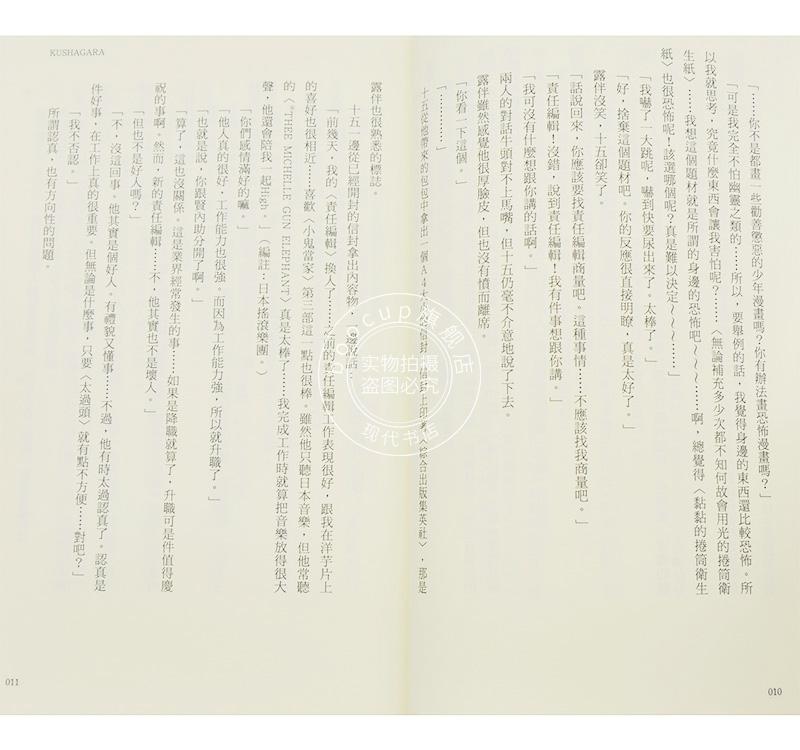 「……你不是都畫一些勸善懲惡的少年漫畫嗎？你有辦法畫恐怖漫畫嗎？」
「可是我完全不怕幽靈之類的……所以，要舉例的話，我覺得身邊的東西還比較恐怖。所
以我就思考，究竟什麼東西會讓我害怕呢？……〈無論補充多少次都不知何故會用光的捲筒衛
生紙〉……我想這個題材就是所謂的身邊的恐怖吧～～～……啊，總覺得〈黏黏的捲筒衛生
紙〉也很恐怖呢！該選哪個呢？真是難以決定～～～……」
「我嚇了一大跳呢，嚇到快要尿出來了。太棒了。」
「好，捨棄這個題材吧。你的反應很直接明瞭，真是太好了。」
露伴沒笑，十五卻笑了。
「話說回來，你應該要找責任編輯商量吧。這種事情……不應該找我商量吧。」
「責任編輯！沒錯，說到責任編輯！我有件事想跟你講。」
「我可沒有什麼想跟你講的話啊。」
兩人的對話牛頭對不上馬嘴，但十五仍毫不介意地說了下去。
露伴雖然感覺他很厚臉皮，但也沒有憤而離席。
「你看一下這個。」
「…………」
十五從他帶來的包包中拿出一個A4大小的信封。信封上印著〈綜合出版集英社〉，那是
010
KUSHAGARA
露伴也很熟悉的標誌。
十五一邊從已經開封的信封拿出內容物，一邊說話：
「前幾天，我的〈責任編輯〉換人了……之前的責任編輯工作表現很好，跟我在洋芋片上
的喜好也很相近……喜歡〈小鬼當家〉第三部這一點也很棒。雖然他只聽日本音樂，但他常聽
的〈"THEE MICHELLE GUN ELEPHANT〉真是太棒了……我完成工作時就算把音樂放得很大
聲，他還會陪我一起High。」（編註：日本搖滾樂團。）
「你們感情滿好的嘛。」
「他人真的很好，工作能力也很強。而因為工作能力強，所以就升職了。」
「也就是說，你跟賢內助分開了啊。」
「算了，這也沒關係。這是業界經常發生的事……如果是降職就算了，升職可是件值得慶
祝的事啊。然而，新的責任編輯……不，他其實也不是壞人。」
「但也不是好人嗎？」
「不，沒這回事。他其實是個好人。有禮貌又懂事……不過，他有時太過認真了。認真是
件好事，在工作上真的很重要。但無論是什麼事，只要〈太過頭〉就有點不方便……對吧？」
「我不否認。」
所謂認真，也有方向性的問題。
011
bookcup旗舰店
实物拍摄
盗图必究
现代书店